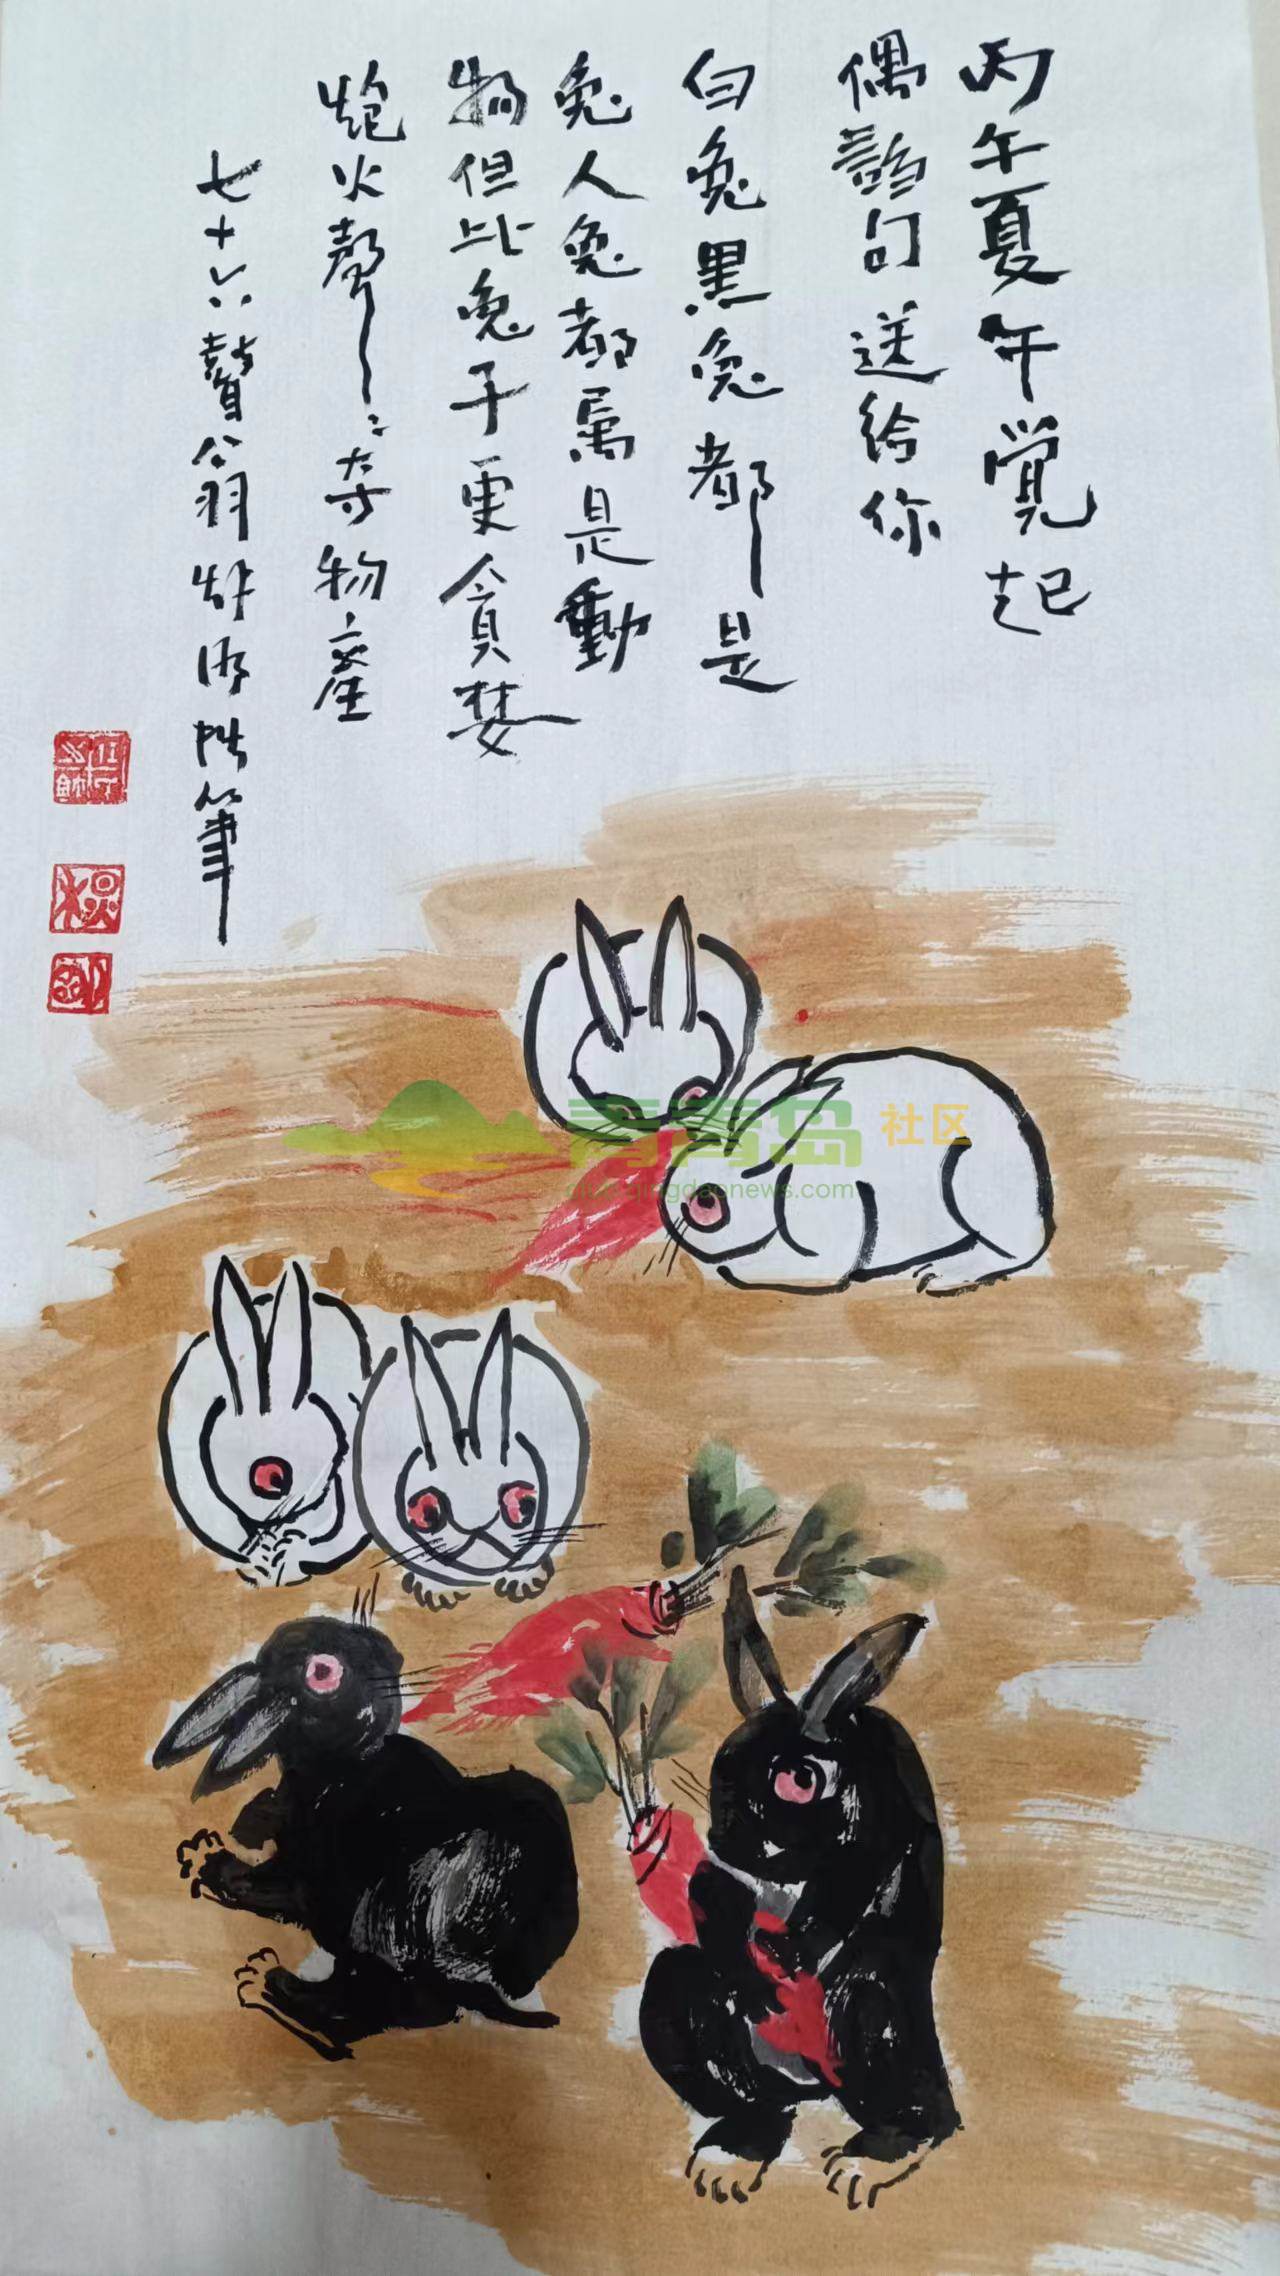 丙午夏午觉起
偶韵句送给你
白兔黑兔都是
兔人兔都属是動
物但比兔子更贪婪
炮火聲声夺物産
七十六贅翁
筆
青青岛社区
club.qingdaonews.com